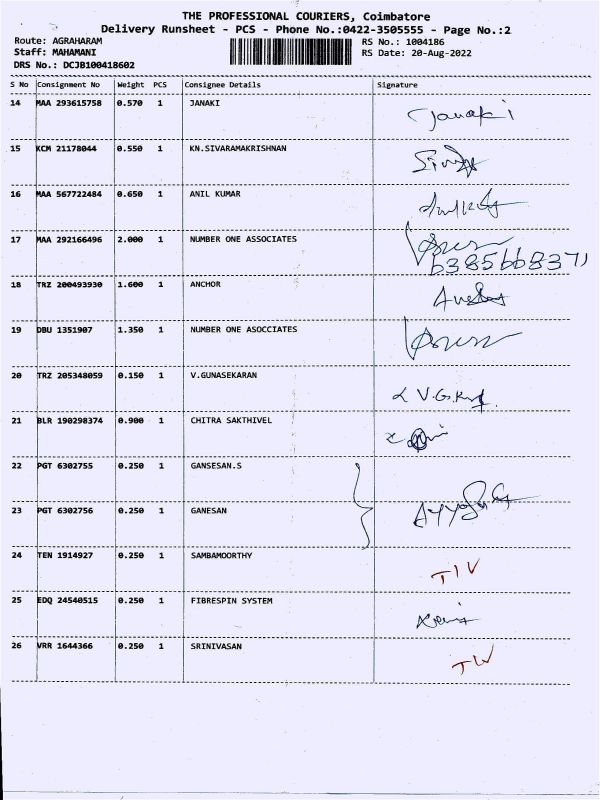 THE PROFESSIONAL COURIERS, Coimbatore
Delivery Runsheet - PCS - Phone No.:0422-3505555 - Page No.:2
Route: AGRAHARAM RS No.: 1004186
Staff: MAHAMANI RS Date: 20-Aug-2022
DRS No.: DCJB100418602
S No Consignment No Weight PCS Consignee Details Signature
14 MAA 293615758 0.570 1 JANAKI Janaki
15 KCM 21178044 0.550 1 KN.SIVARAMAKRISHNAN
16 MAA 567722484 0.650 1 ANIL KUMAR
17 MAA 292166496 2.000 1 NUMBER ONE ASSOCIATES
6385668371
18 TRZ 200493930 1.600 1 ANCHOR
19 DBU 1351907 1.350 1 NUMBER ONE ASOCCIATES
20 TRZ 205348059 0.150 1 V.GUNASEKARAN
21 BLR 190298374 0.900 1 CHITRA SAKTHIVEL
22 PGT 6302755 0.250 1 GANSESAN.S
23 PGT 6302756 0.250 1 GANESAN
24 TEN 1914927 0.250 1 SAMBAMOORTHY
25 EDQ 24540515 0.250 1 FIBRESPIN SYSTEM
26 VRR 1644366 0.250 1 SRINIVASAN